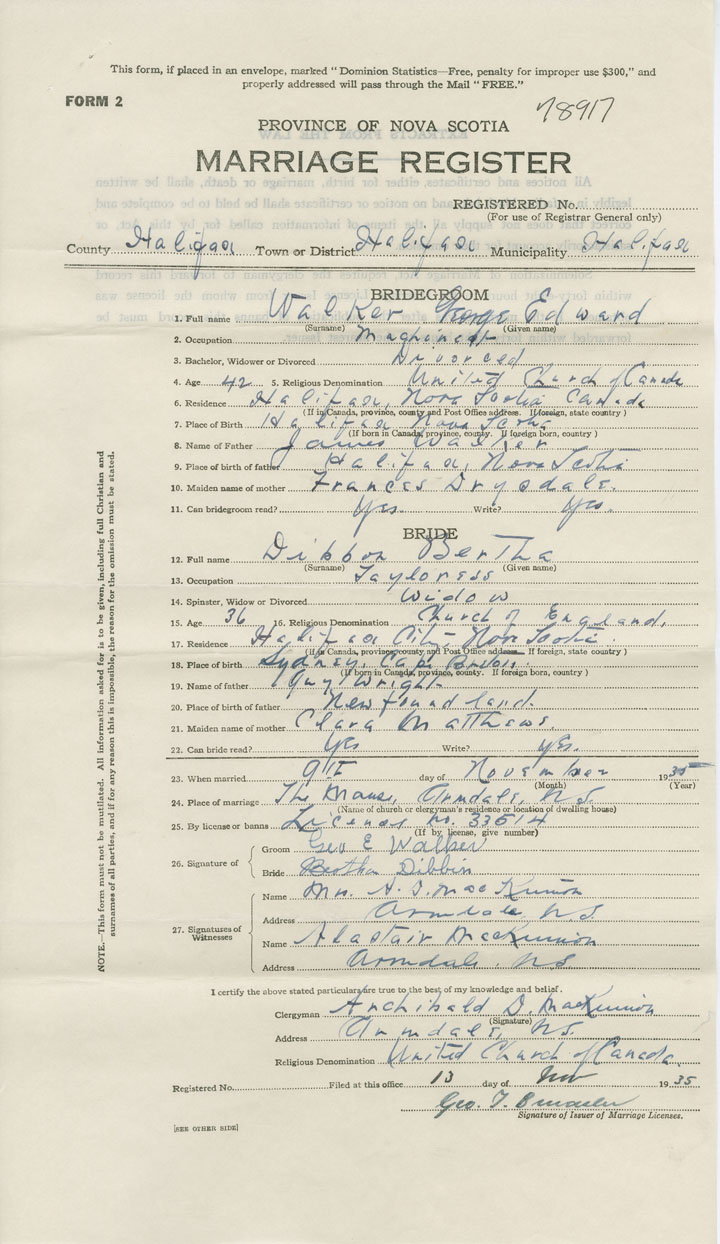 This form, if placed in an envelope, marked "Dominion Statistics—Free, penalty for improper use $300," and
properly addressed will pass through the Mail "FREE."
FORM 2
78917
PROVINCE OF NOVA SCOTIA
MARRIAGE REGISTER
REGISTERED No.
(For use of Registrar General only)
County Halifax Town or District Halifax Municipality Halifax
BRIDEGROOM
1. Full name Walker George Edward
(Surname) (Given name)
2. Occupation Machinest
3. Bachelor, Widower or Divorced Divorced
4. Age 42 5. Religious Denomination United Church of Canada
6. Residence Halifax, Nova Scotia Canada
(If in Canada, province, county and Post Office address. If foreign, state country)
7. Place of Birth Halifax Nova Scotia
(If born in Canada, province, county. If foreign born, country)
8. Name of Father James Walker
9. Place of birth of father Halifax, Nova Scotia
10. Maiden name of mother Frances Drysdale.
11. Can bridegroom read? Yes. Write? Yes.
BRIDE
12. Full name Dibbon Bertha
(Surname) (Given name)
13. Occupation Tayloress
14. Spinster, Widow or Divorced Widow
15. Age 36 16. Religious Denomination Church of England,
17. Residence Halifax City - Nova Scotia.
(If in Canada, province, county and Post Office address. If foreign, state country)
18. Place of birth Sydney, Cape Breton.
(If born in Canada, province, county. If foreign born, country)
19. Name of father Guy Wright
20. Place of birth of father Newfoundland.
21. Maiden name of mother Clara Matthews.
22. Can bride read? Yes Write? yes.
23. When married 9th day of November 1935
(Month) (Year)
24. Place of marriage The Manse, Armdale, N.S.
(Name of church or clergyman's residence or location of dwelling house)
25. By license or banns License no. 33514
(If by license, give number)
26. Signature of Groom Geo E Walker
Bride Bertha Dibbin
27. Signatures of Witnesses Name Mrs. A. D. MacKinnon
Address Armdale N.S.
Name Alastair MacKinnon
Address Armdale. N.S
I certify the above stated particulars are true to the best of my knowledge and belief.
Clergyman Archibald D. MacKinnon
(Signature)
Address Armdale, N.S.
Religious Denomination United Church of Canada.
Registered No. Filed at this office 13 day of Nov 1935
Geo. T.
Signature of Issuer of Marriage Licenses.
[SEE OTHER SIDE]
NOTE.—This form must not be mutilated. All information asked for is to be given, including full Christian and
surnames of all parties, and if for any reason this is impossible, the reason for the omission must be stated.